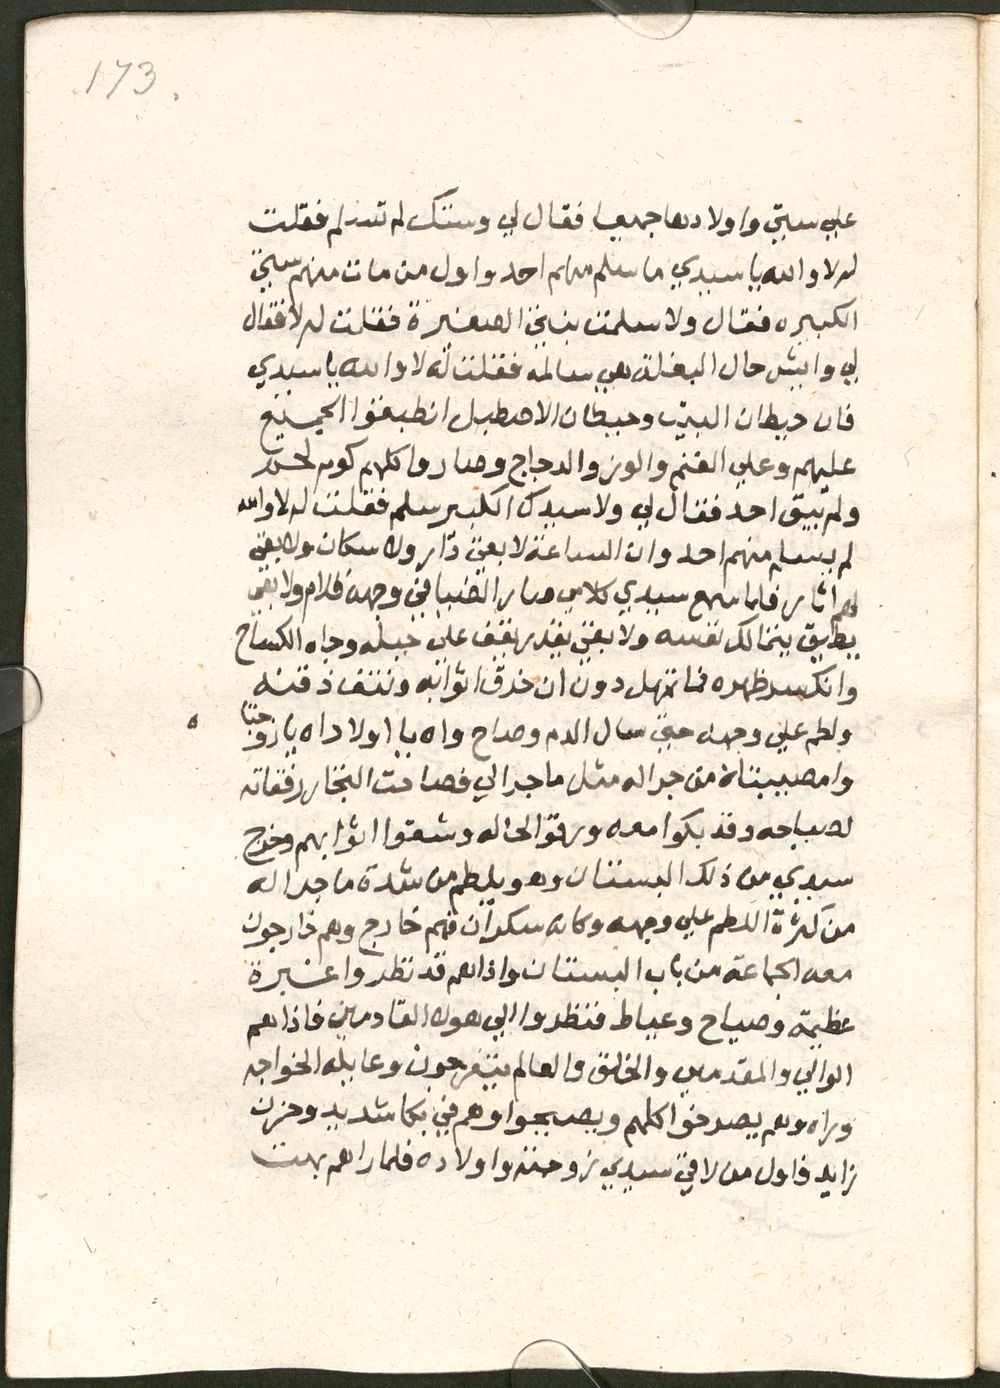 173
علي ستي واولادها جميعا فقال لي وستك لم تسلم فقلت
له لا والله يا سيدي ما سلم منهم احد واول من مات منهم ستي
الكبيره فقال ولا سلمت بنتي الصغيرة فقلت له لا فقال
لي وايش حال البغلة هي سالمه فقلت له لا والله يا سيدي
فان حيطان البيت وحيطان الاصطبل انطبقوا الجميع
عليهم وعلي الغنم والوز والدجاج وصاروا كلهم كوم لحم
ولم يبق احد فقال لي ولا سيدك الكبير سلم فقلت له لا والله
لم يسلم منهم احد وان الساعة لا بقي دار ولا سكان ولا بقي
لهم اثار فلما سمع سيدي كلامي صار الضيا في وجهه ظلام ولا بقي
يطيق يتمالك نفسه ولا بقي يقدر يقف علي حيله وجاه الكساح
وانكسر ظهره فما تمهل دون ان خرق اثوابه ونتف ذقنه
ولطم علي وجهه حتي سال الدم وصاح واه يا اولاداه يا زوجتاه
وا مصيبتاه من جراله مثل ما جرالي فصاحت التجار رفقاته
لصياحه وقد بكوا معه ورقوا لحاله وشقوا اثوابهم وخرج
سيدي من ذلك البستان وهو يلطم من شدة ما جراله
من كثرة اللطم علي وجهه وكانه سكران فهم خارج وهم خارجون
معه الجماعة من باب البستان واذا هم قد نظروا غبيرة
عظيمة وصياح وعياط فنظروا الي هولا القادمين فاذا هم
الوالي والمقدمين والخلق والعالم يتفرجون وعايله الخواجه
وراه وهم يصرخوا كلهم ويصيحوا وهم في بكا شديد وحزن
زايد فاول من لاقي سيدي زوجته واولاده فلما راهم بهت